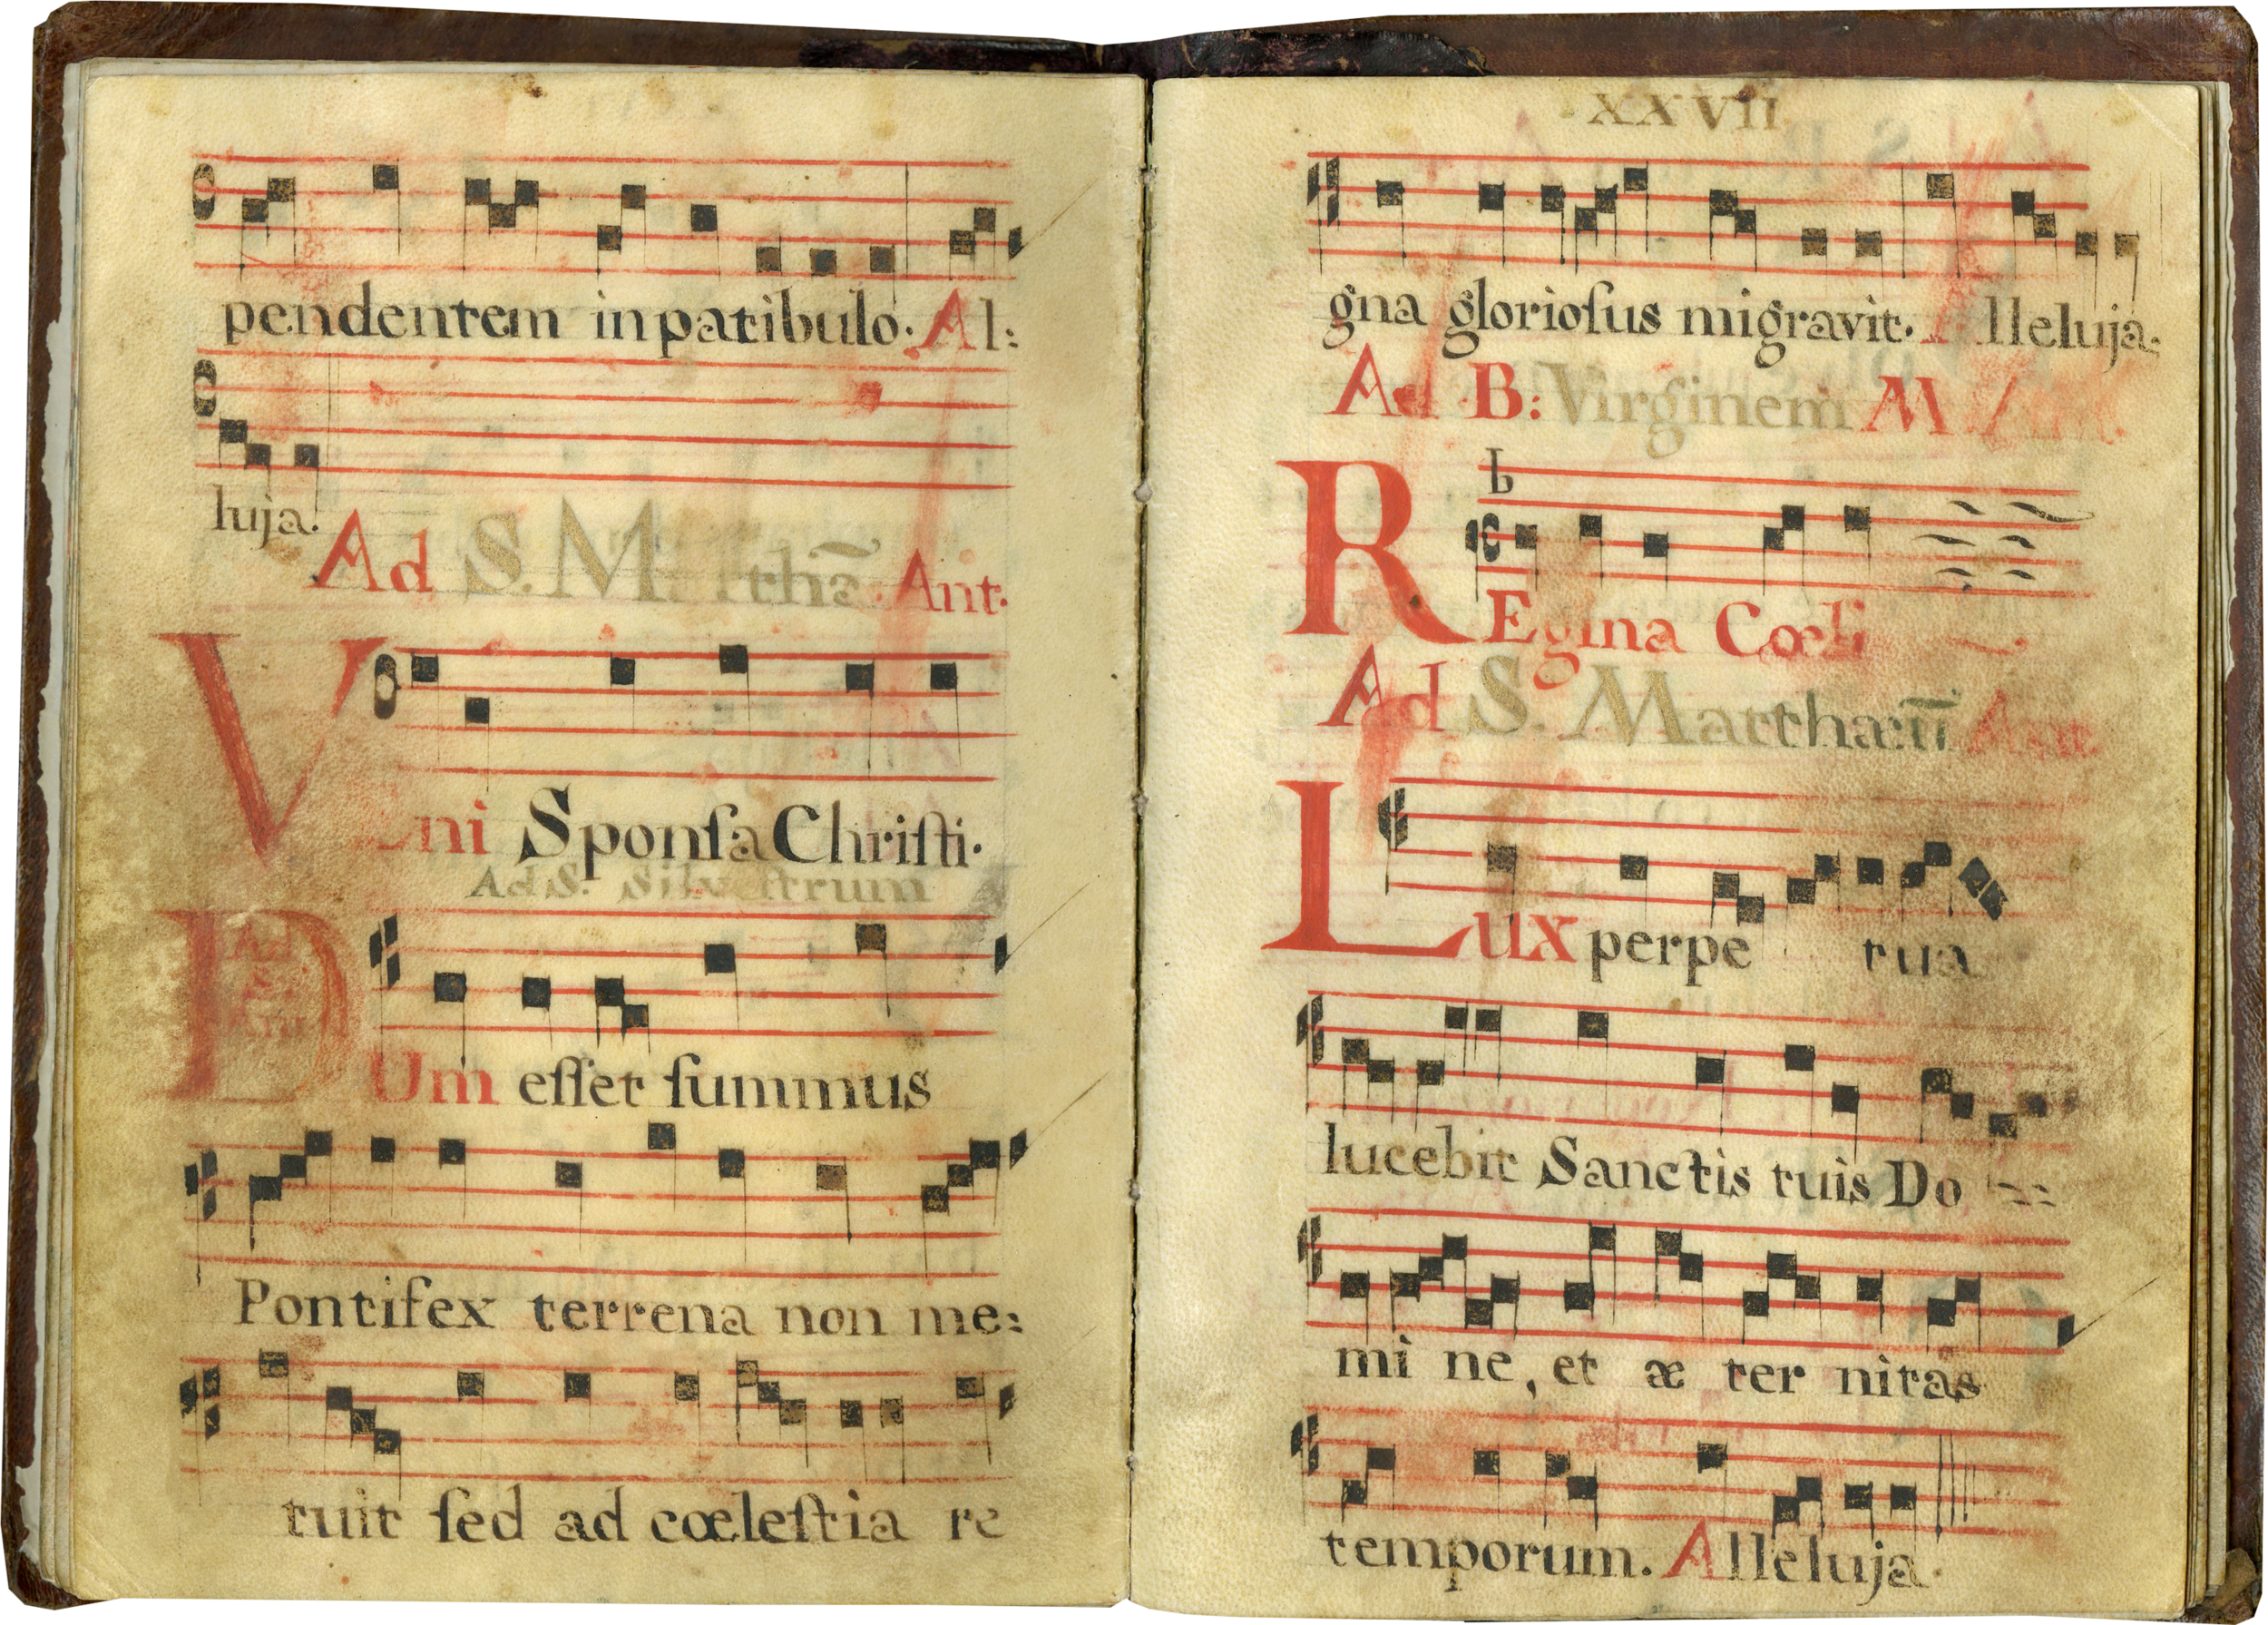 pendentem in patibulo. Al:
luja.
Ad S. M thā. Ant.
V ni Sponſa Chriſti.
Ad S. Silveſtrum
Ad
Ant
DUm eſſet ſummus
Pontifex terrena non me:
tuit ſed ad cœleſtia re
XXVII
gna glorioſus migravit. Alleluja.
Ad B: Virginem M
REgina Cœli
Ad S. Matthæū Ant
Lux perpe tua
lucebit Sanctis tuis Do
mi ne, et æ ter nitas
temporum. Alleluja.